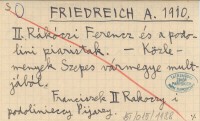 FRIEDREICH A. 1910.
II. Rákóczi Ferencz és a podo-
lini piaristák. — Közle-
mények Szepes vármegye mult-
jából.
Franciszek II Rakoczy i
podolinieccy Pijarzy.